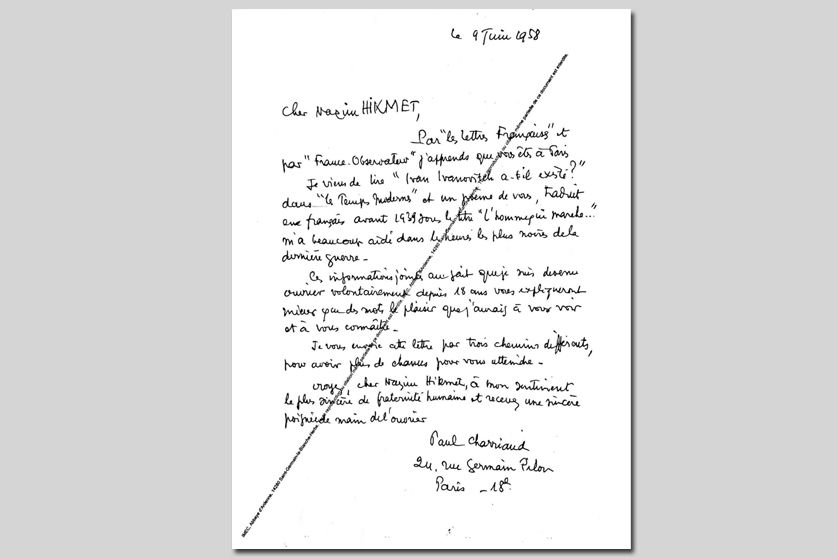 le 9 Juin 1958
Cher Nazim HIKMET,
Par "les Lettres Françaises" et
par "France-Observateur" j'apprends que vous êtes à Paris
Je viens de lire "Ivan Ivanovitch a-t-il existé?"
dans "les Temps Modernes" et un poème de vous, traduit
en français avant 1939 sous le titre "l'homme qui marche..."
m'a beaucoup aidé dans les heures les plus noires de la
dernière guerre.
Ces informations jointes au fait que je suis devenu
ouvrier volontairement depuis 18 ans vous expliqueront
mieux que des mots le plaisir que j'aurais à vous voir
et à vous connaître.
Je vous envoie cette lettre par trois chemins différents,
pour avoir plus de chances pour vous atteindre.
Croyez, cher Nazim Hikmet, à mon sentiment
le plus sincère de fraternité humaine et recevez une sincère
poignée de main de l'ouvrier
Paul Charriaud
24, rue Germain Pilon
Paris - 18e
IMEC, Abbaye d'Ardenne, 14280 Saint-Germain-la-Blanche-Herbe
de ce document est interdite.